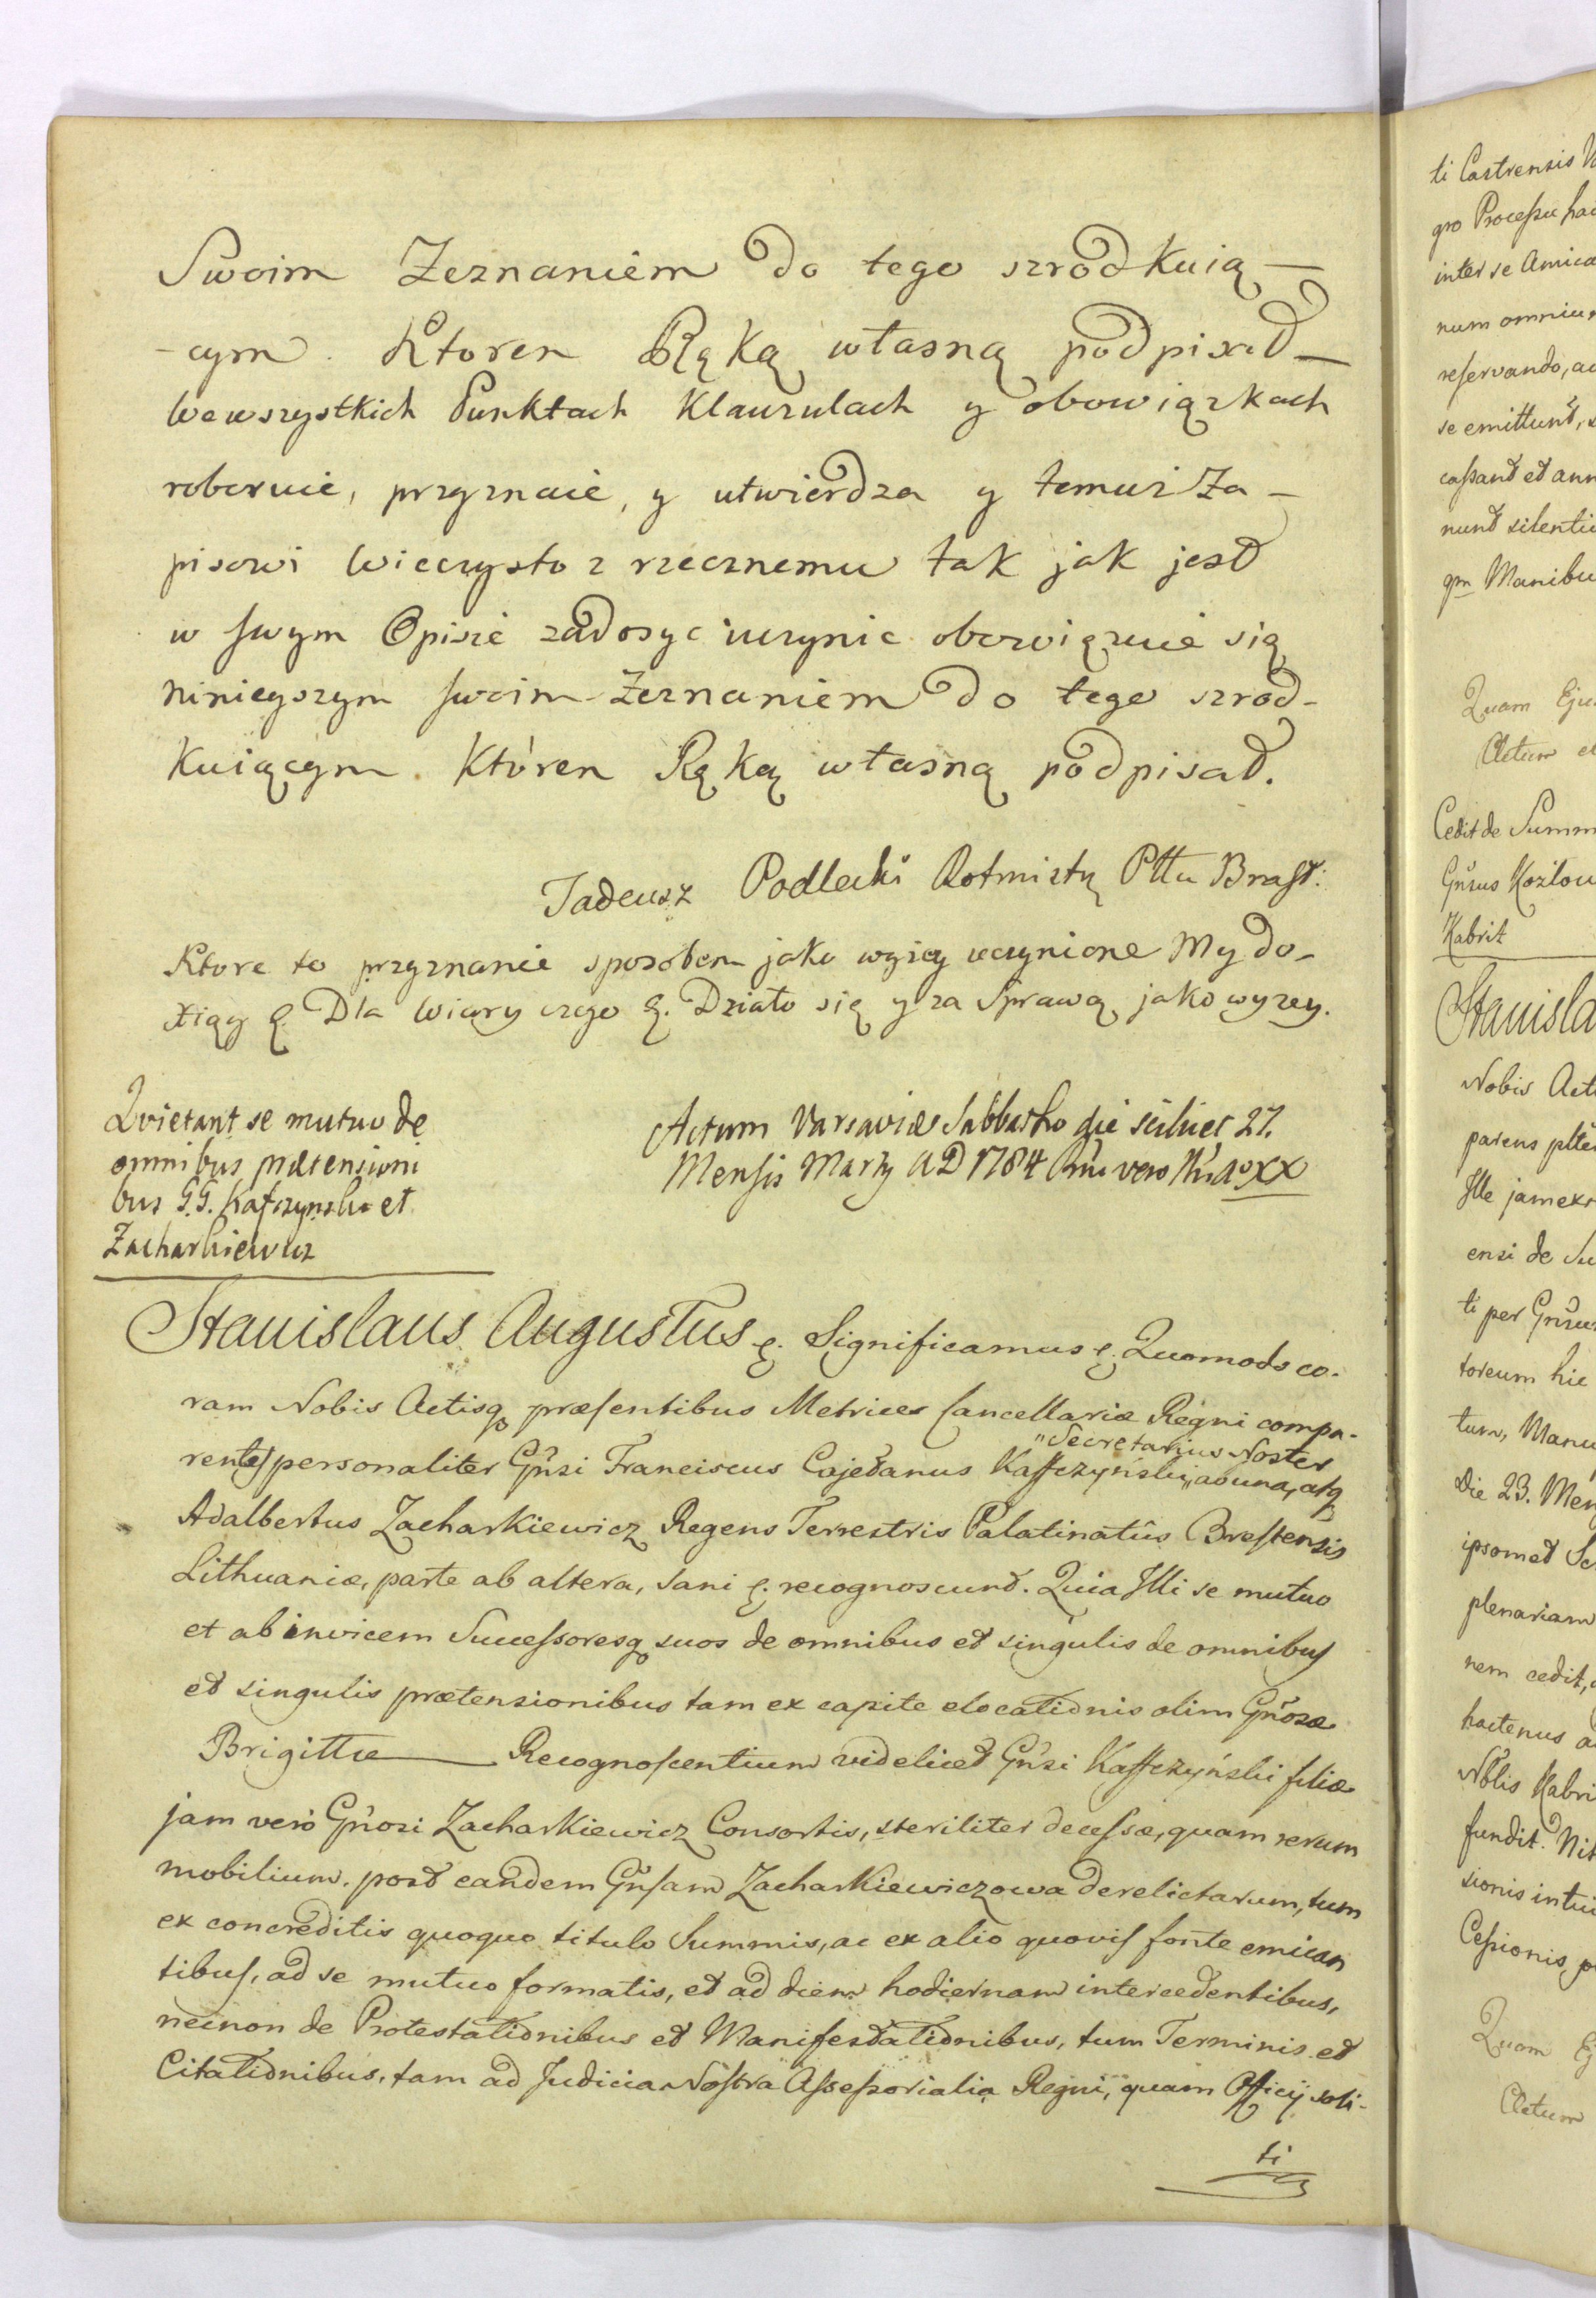 Swoim Zeznaniem do tego szrodkuią—
-cym. Ktoren Ręką własną podpisał—
we wszystkich Punktach Klauzulach y obowiązkach
roboruie, przyznaie, y utwierdza y temuż Za-
pisowi Wieczysto z rzecznemu tak jak jest
w swym Opisie zadosyc uczynic obowiązuie się
ninieyszym swoim Zeznaniem do tego szrod-
kuiącym. Któren Ręką własną podpisał.
Tadeusz Podlecki Rotmistrz Pttu Brast:
Ktore to przyznanie sposobem jako wyżey uczynione My do-
xiąg &. Dla Wiary czego &. Działo się y za Sprawą jako wyzey.
Qvietant se mutuo de
omnibus prætensioni
bus G.G. Kafczynski et
Zacharkiewicz
Actum Varsaviæ Sabbatho die scilicet 27.
Mensis Martij AD 1784 vero XX
Stanislaus Augustus &. Significamus &. Quomodo co-
ram Nobis Actisq præsentibus Metrices Cancellariæ Regni compa-
rentes personaliter Gnsi Franciscus Cajetanus Kaffczyński „Secretarius Noster „ab una, atq
Adalbertus Zacharkiewicz Regens Terrestris Palatinatûs Brestensis
Lithuaniæ, parte ab altera, sani &. recognoscunt. Quia Illi se mutuo
et ab invicem Successoresq suos de omnibus et singulis de omnibus
et singulis prætensionibus tam ex capite elocationis olim Gnosæ
Brigittæ — Recognoscentium videlicet Gnsi Kaffczyński filiæ
jam verò Gnosi Zacharkiewicz Consortis, steriliter decessæ, quam rerum
mobilium. post eandem Gnsam Zacharkiewiczowa derelictarum, tum
ex concreditis quoquo titulo Summis, ac ex alio quovis fonte emican
tibus, ad se mutuo formatis, et ad diem hodiernam intercedentibus,
necnon de Protestationibus et Manifestationibus, tum Terminis et
Citationibus, tam ad Judicia Nostra Assessorialia Regni, quam Officij soli-
ti
ti Castrensis
pro Processu
inter se
num omnium
reservando,
se emittunt,
cassant et
nunt
qm Manibus
Quam
Actum
Cedit de
Gnsus
Kabrit
Nobis
parens
Ille
ensi de
ti per
toreum hic
tum,
Die 23.
ipsomet
plenariam
nem cedit,
hactenus
Nblis
fundit.
sionis
Cessionis,
Quam
Actum